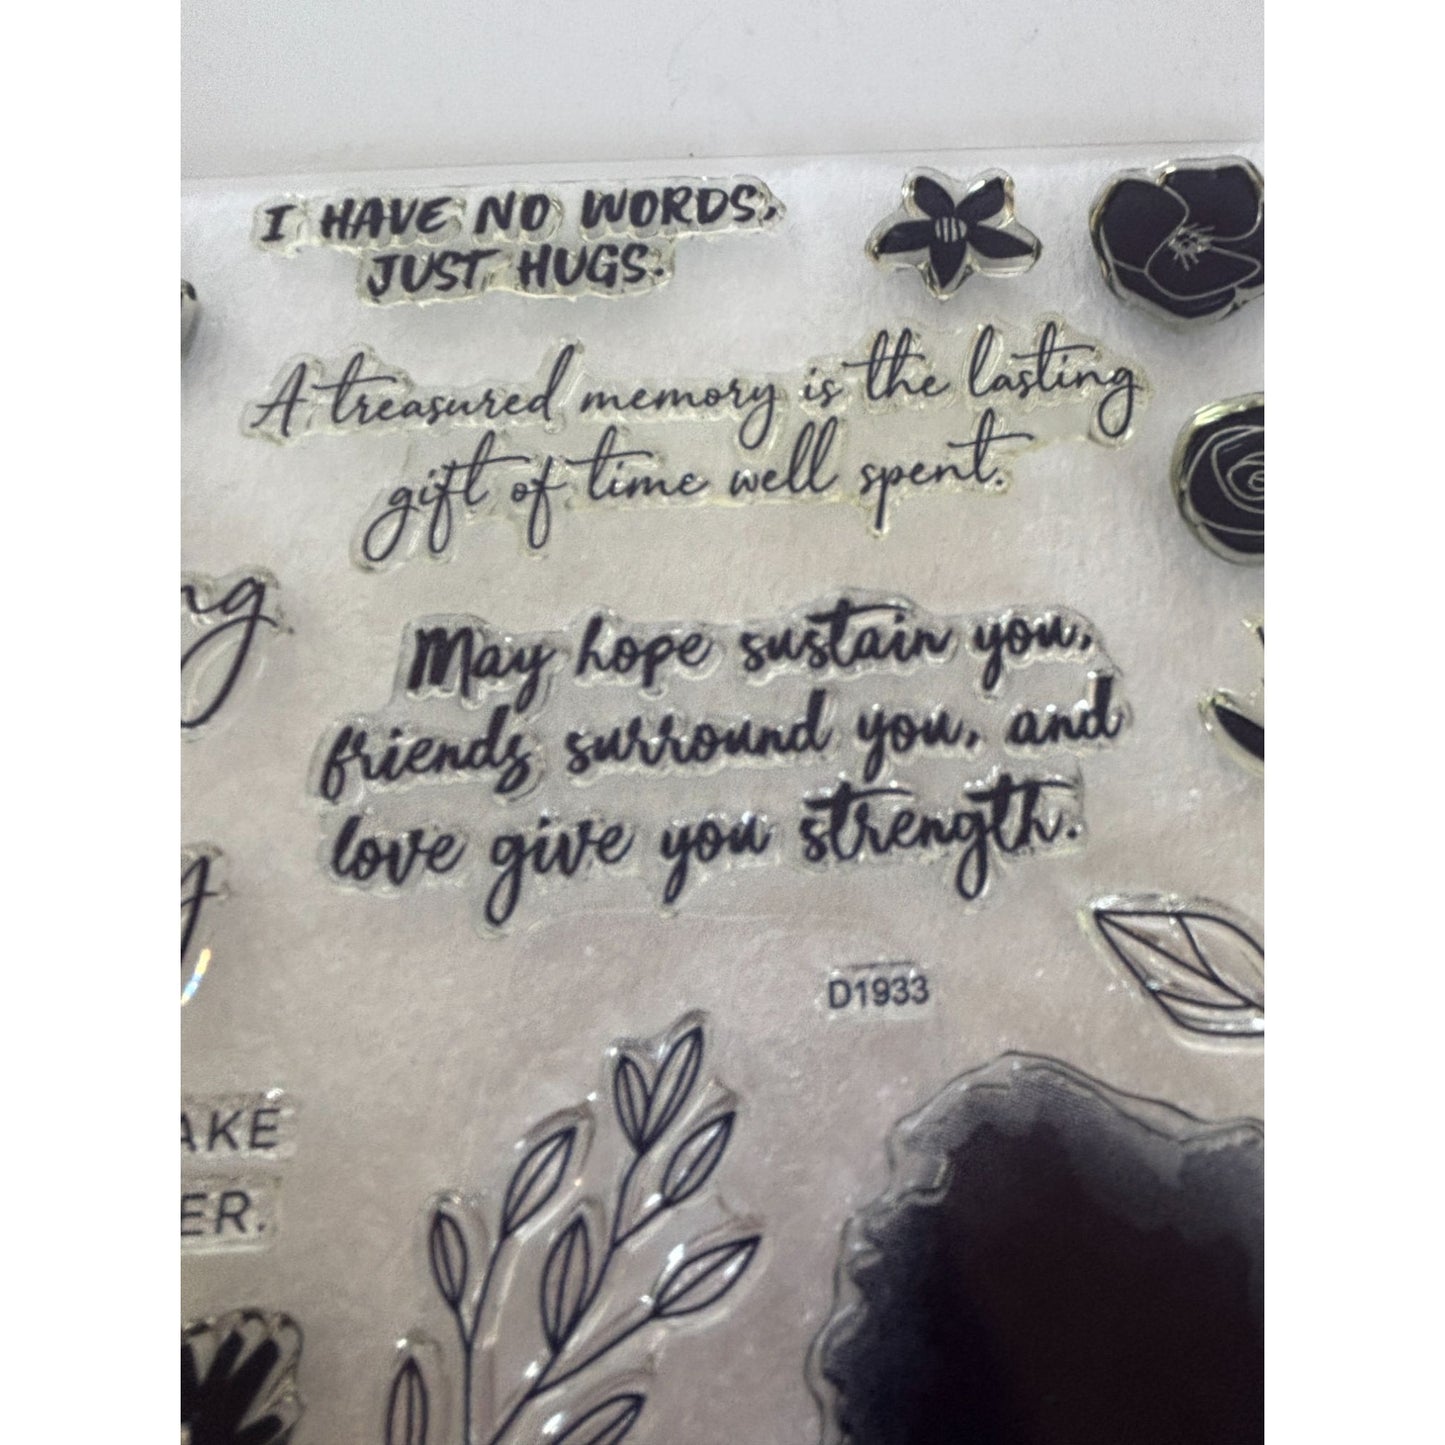 I HAVE NO WORDS,
JUST HUGS.
A treasured memory is the lasting
gift of time well spent.
ng
May hope sustain you,
friends surround you, and
love give you strength.
y
D1933
AKE
ER.